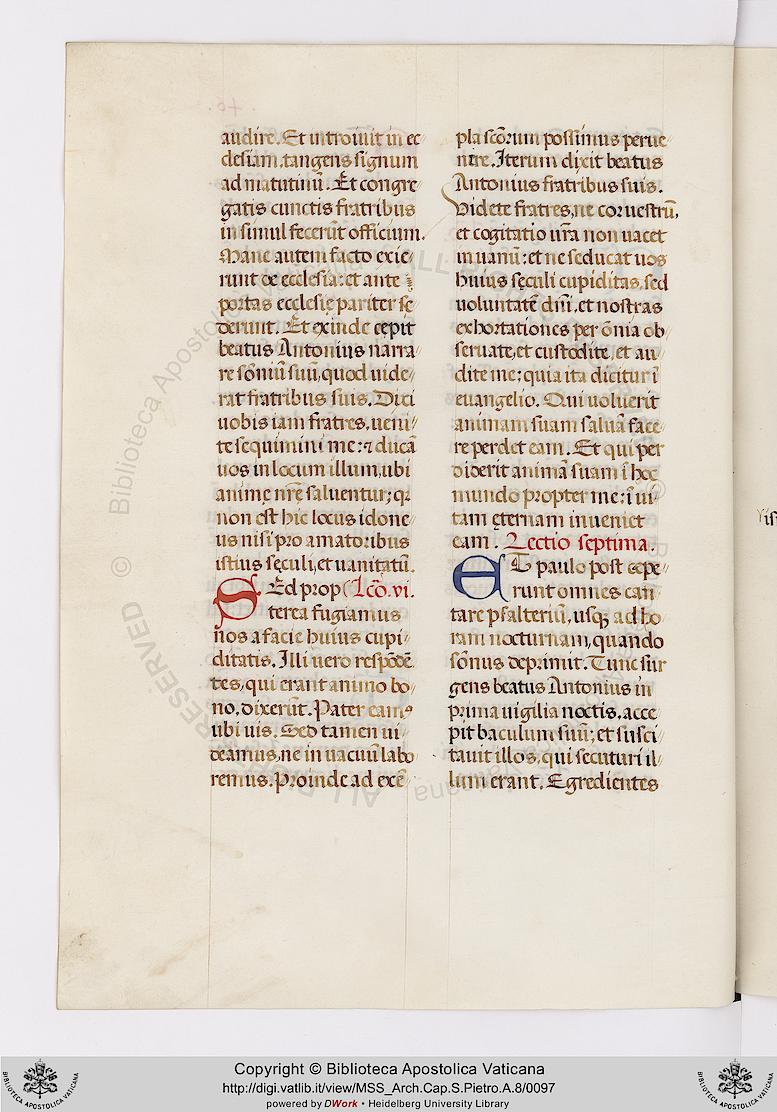 audire. Et introiuit in ec
clesiam, tangens signum
ad matutinū. Et congre
gatis cunctis fratribus
in simul fecerūt officium.
Mane autem facto exie
runt de ecclesia: et ante
portas ecclesię pariter se
derunt. Et exinde cepit
beatus Antonius narra
re sōniū suū, quod uide
rat fratribus suis. Dici
uobis iam fratres, ueni
te sequimini me: ⁊ ducā
uos in locum illum, ubi
animę nr̄e saluentur; qꝛ
non est hic locus idone
us nisi pro amatoribus
istius sęculi, et uanitatū.
Sed prop Lcō. vi.
terea fugiamus
nos a facie huius cupi
ditatis. Illi uero respōdē
tes, qui erant animo bo
no, dixerūt. Pater eamꝰ
ubi uis. Sed tamen ui
deamus, ne in uacuū labo
remus. Proinde ad exē
pla scōrum possimus perue
nire. Iterum dixit beatus
Antonius fratribus suis.
Videte fratres, ne cor uestrū,
et cogitatio ur̄a non uacet
in uanū: et ne seducat uos
huius sęculi cupiditas, sed
uoluntatē dn̄i, et nostras
exhortationes per ōnia ob
seruate, et custodite, et au
dite me; quia ita dicitur ī
euangelio. Qui uoluerit
animam suam saluā face
re perdet eam. Et qui per
diderit animā suam ī hoc
mundo propter me: ī ui
tam ęternam inueniet
eam. Lectio septima.
ET paulo post cepe
runt omnes can
tare psalteriū, usqꝫ ad ho
ram nocturnam, quando
sōnus deprimit. Tunc sur
gens beatus Antonius in
prima uigilia noctis, acce
pit baculum suū; et susci
tauit illos, qui secuturi il
lum erant. Egredientes
Copyright © Biblioteca Apostolica Vaticana
http://digi.vatlib.it/view/MSS_Arch.Cap.S.Pietro.A.8/0097
powered by DWork • Heidelberg University Library